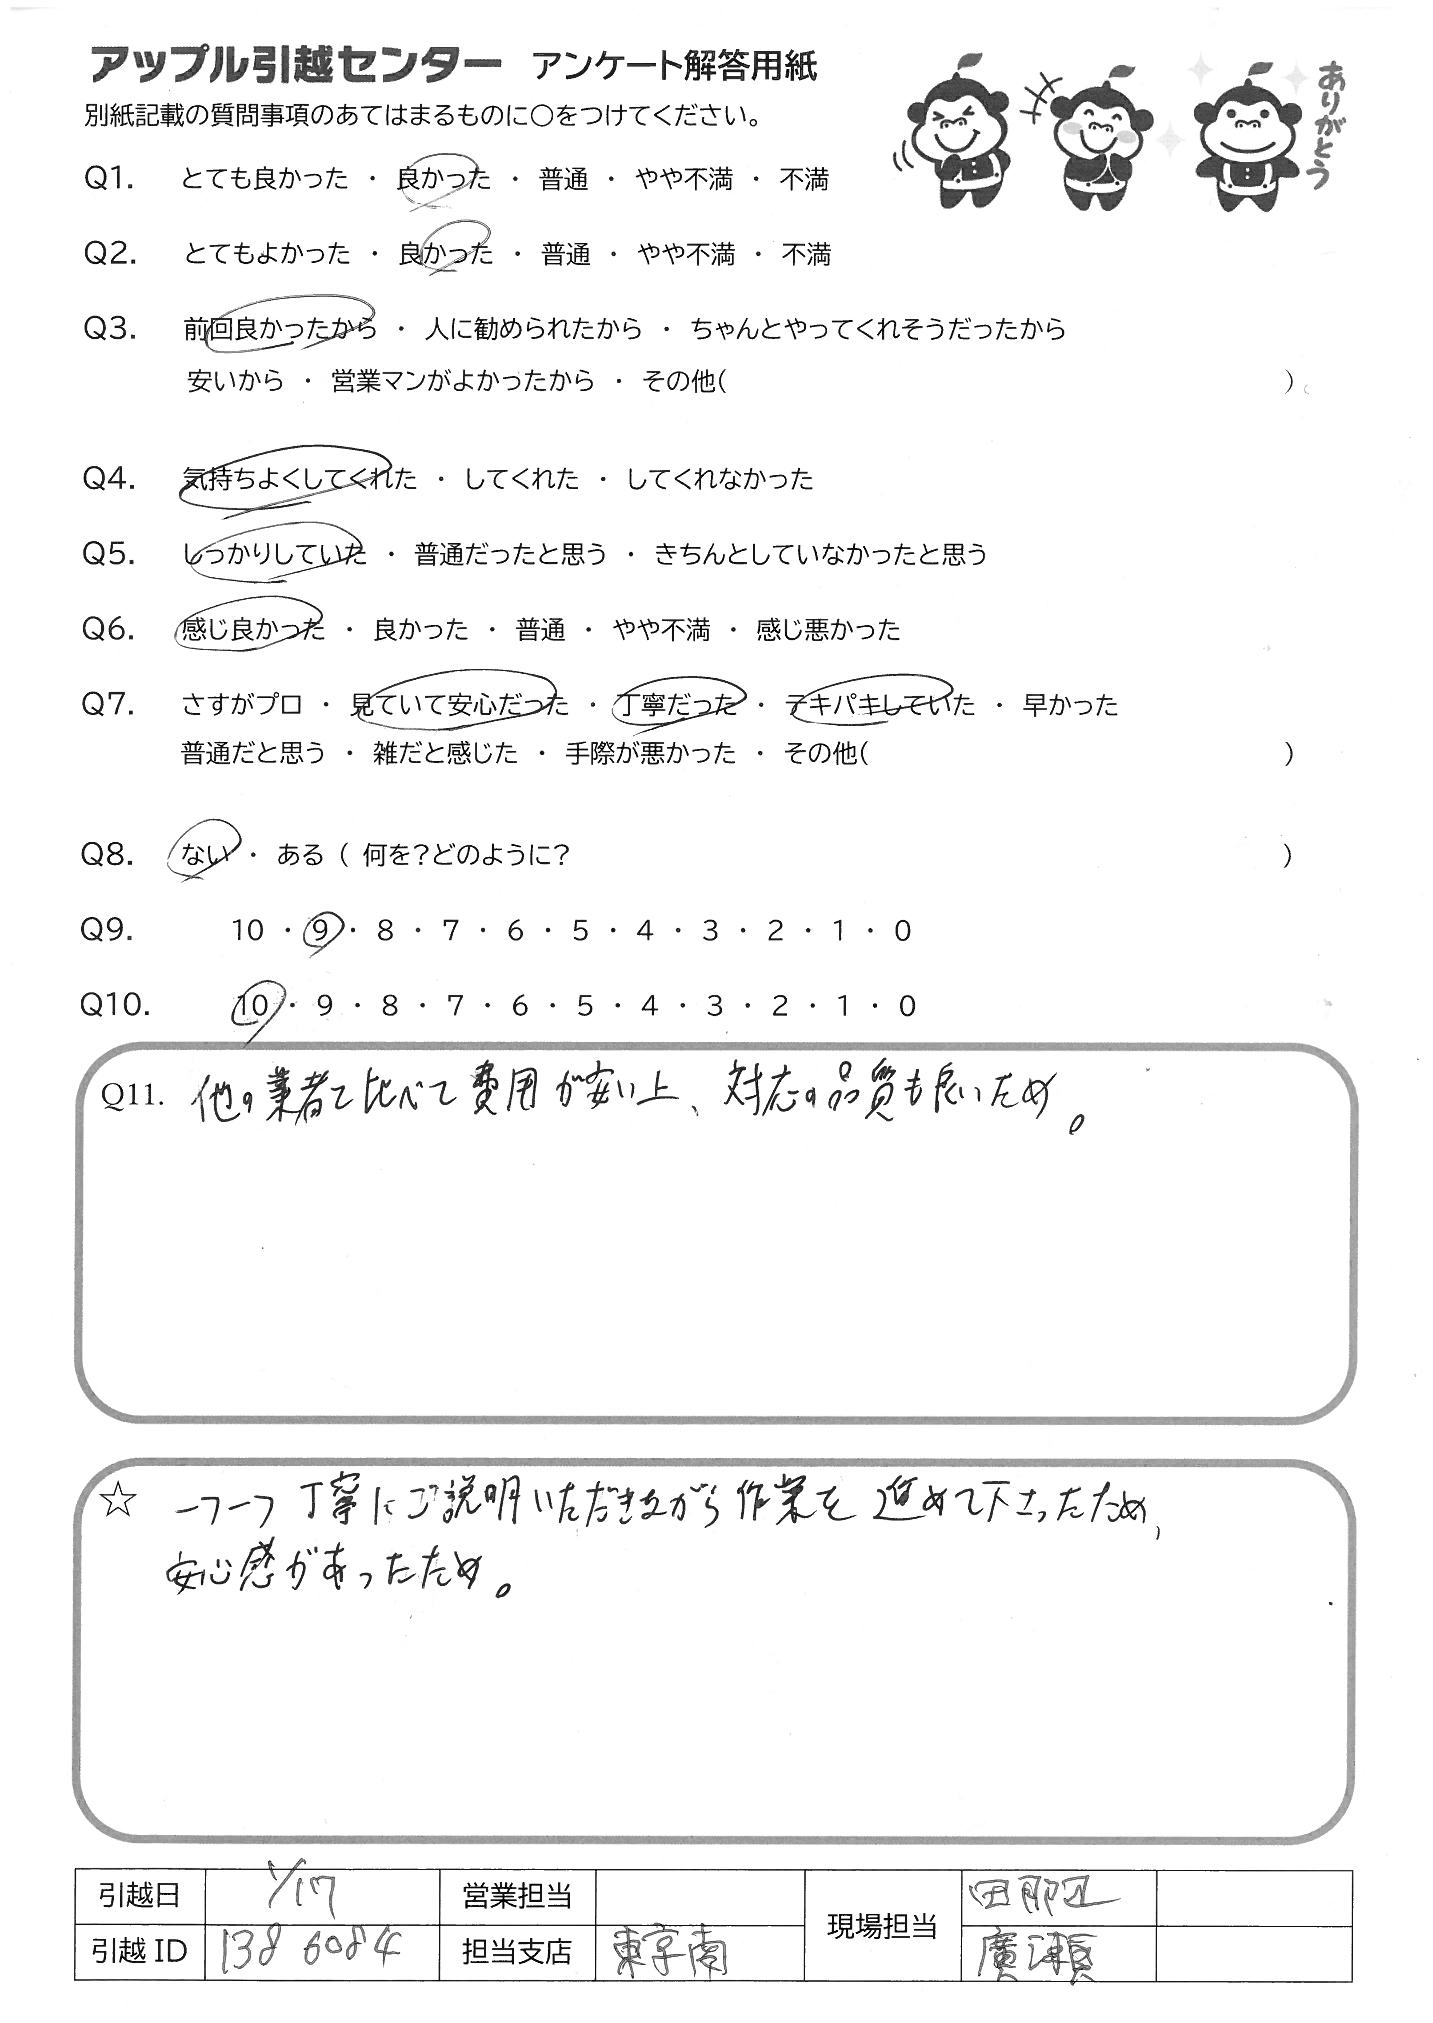 アップル引越センター アンケート解答用紙
ありがとう
別紙記載の質問事項のあてはまるものに○をつけてください。
Q1. とても良かった ・ 良かった ・ 普通 ・ やや不満 ・ 不満
Q2. とてもよかった ・ 良かった ・ 普通 ・ やや不満 ・ 不満
Q3. 前回良かったから ・ 人に勧められたから ・ ちゃんとやってくれそうだったから
安いから ・ 営業マンがよかったから ・ その他( )
Q4. 気持ちよくしてくれた ・ してくれた ・ してくれなかった
Q5. しっかりしていた ・ 普通だったと思う ・ きちんとしていなかったと思う
Q6. 感じ良かった ・ 良かった ・ 普通 ・ やや不満 ・ 感じ悪かった
Q7. さすがプロ ・ 見ていて安心だった ・ 丁寧だった ・ テキパキしていた ・ 早かった
普通だと思う ・ 雑だと感じた ・ 手際が悪かった ・ その他( )
Q8. ない ・ ある ( 何を?どのように? )
Q9. 10 ・ 9 ・ 8 ・ 7 ・ 6 ・ 5 ・ 4 ・ 3 ・ 2 ・ 1 ・ 0
Q10. 10 ・ 9 ・ 8 ・ 7 ・ 6 ・ 5 ・ 4 ・ 3 ・ 2 ・ 1 ・ 0
Q11. 他の業者と比べて費用が安い上、対応の品質も良いため。
☆ 一つ一つ丁寧にご説明いただきながら作業を進めて下さったため、
安心感があったため。
引越日 1/17 営業担当 現場担当 田那辺
引越 ID 138 6084 担当支店 東京南 廣瀬